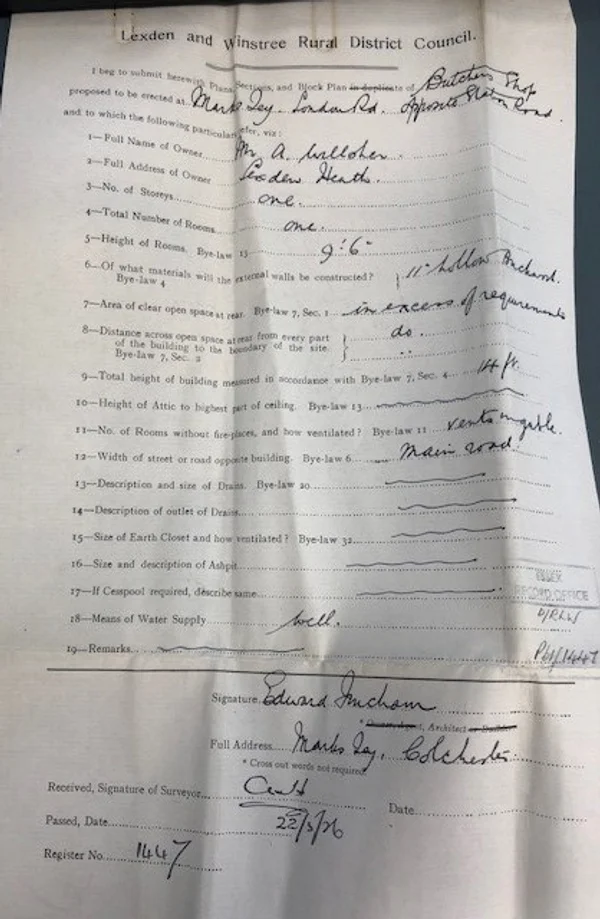 Lexden and Winstree Rural District Council.
I beg to submit herewith Plans, Sections, and Block Plan in duplicate of Butchers Shop
proposed to be erected at Marks Tey. London Rd. opposite Station Road.
and to which the following particulars refer, viz:
1—Full Name of Owner Mr A.
2—Full Address of Owner Lexden Heath.
3—No. of Storeys one.
4—Total Number of Rooms one.
5—Height of Rooms. Bye-law 13 9'.6"
6—Of what materials will the external walls be constructed? 11" hollow
Bye-law 4
7—Area of clear open space at rear. Bye-law 7, Sec. 1 in excess of requirements
8—Distance across open space at rear from every part do.
of the building to the boundary of the site.
Bye-law 7, Sec. 2
9—Total height of building measured in accordance with Bye-law 7, Sec. 4 14 ft.
10—Height of Attic to highest part of ceiling. Bye-law 13
11—No. of Rooms without fire-places, and how ventilated? Bye-law 11 vents in gable.
12—Width of street or road opposite building. Bye-law 6 Main road.
13—Description and size of Drains. Bye-law 20
14—Description of outlet of Drains
15—Size of Earth Closet and how ventilated? Bye-law 32
16—Size and description of Ashpit
17—If Cesspool required, describe same
ESSEX
RECORD OFFICE
18—Means of Water Supply well.
D/RLw
19—Remarks
Pb1/1447
Signature Edward
Architect
Full Address Marks Tey, Colchester
* Cross out words not required
Received, Signature of Surveyor
Date
Passed, Date 22/3/26
Register No. 1447